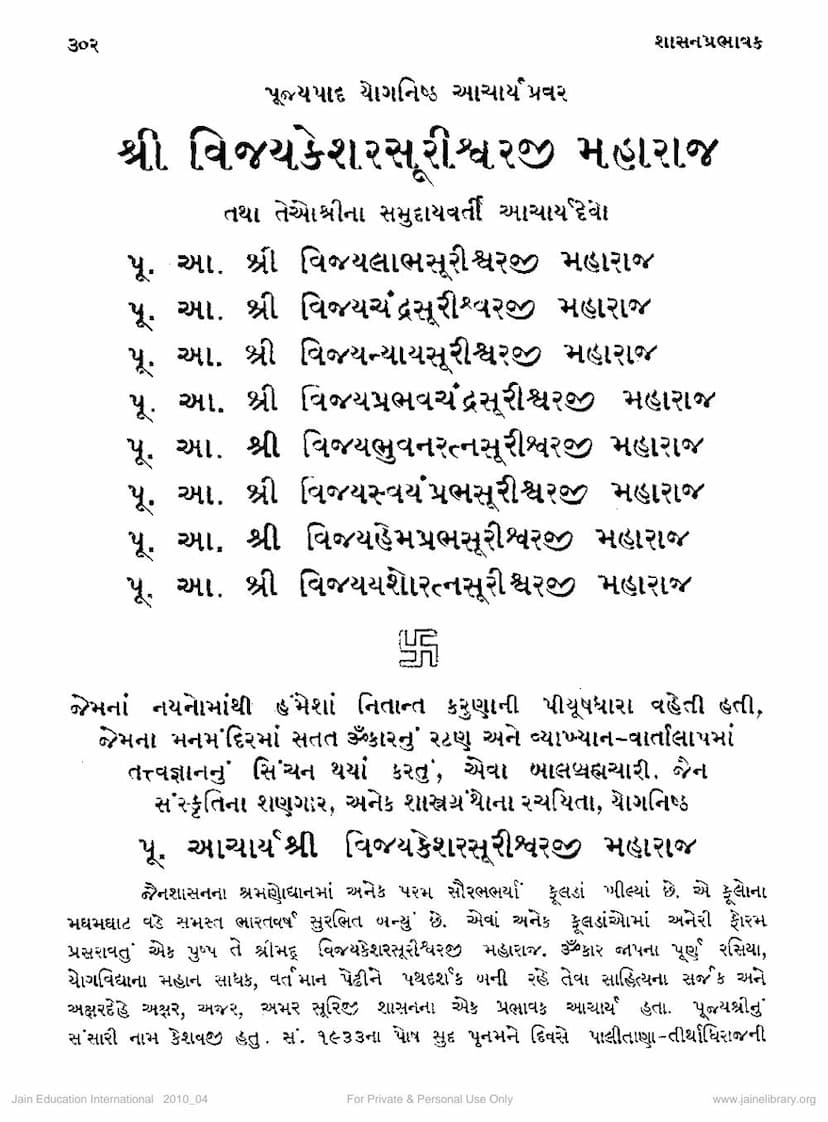 ૩૦૨ શાસનપ્રભાવક
પૂજ્યપાદ યોગનિષ્ઠ આચાર્યપ્રવર
શ્રી વિજયકેશરસૂરીશ્વરજી મહારાજ
તથા તેઓશ્રીના સમુદાયવર્તી આચાર્યદેવો
પૂ. આ. શ્રી વિજયલાભસૂરીશ્વરજી મહારાજ
પૂ. આ. શ્રી વિજયચંદ્રસૂરીશ્વરજી મહારાજ
પૂ. આ. શ્રી વિજયન્યાયસૂરીશ્વરજી મહારાજ
પૂ. આ. શ્રી વિજયપ્રભવચંદ્રસૂરીશ્વરજી મહારાજ
પૂ. આ. શ્રી વિજયભુવનરત્નસૂરીશ્વરજી મહારાજ
પૂ. આ. શ્રી વિજયસ્વયંપ્રભસૂરીશ્વરજી મહારાજ
પૂ. આ. શ્રી વિજયહેમપ્રભસૂરીશ્વરજી મહારાજ
પૂ. આ. શ્રી વિજયયશોરત્નસૂરીશ્વરજી મહારાજ
જેમનાં નયનોમાંથી હંમેશાં નિતાન્ત કરુણાની પીયૂષધારા વહેતી હતી,
જેમના મનમંદિરમાં સતત ૐકારનું રટણ અને વ્યાખ્યાન-વાર્તાલાપમાં
તત્ત્વજ્ઞાનનું સિંચન થયાં કરતું, એવા બાલબ્રહ્મચારી. જૈન
સંસ્કૃતિના શણગાર, અનેક શાસ્ત્રગ્રંથોના રચયિતા, યોગનિષ્ઠ
પૂ. આચાર્યશ્રી વિજયકેશરસૂરીશ્વરજી મહારાજ
જૈનશાસનના શ્રમણોદ્યાનમાં અનેક પરમ સૌરભભર્યાં ફૂલડાં ખીલ્યાં છે. એ ફૂલોના
મઘમઘાટ વડે સમસ્ત ભારતવર્ષ સુરભિત બન્યું છે. એવાં અનેક ફૂલડાંઓમાં અનેરી ફોરમ
પ્રસરાવતું એક પુષ્પ તે શ્રીમદ્ વિજયકેશરસૂરીશ્વરજી મહારાજ. ૐકાર જાપના પૂર્ણ રસિયા,
યોગવિદ્યાના મહાન સાધક, વર્તમાન પેઢીને પથદર્શક બની રહે તેવા સાહિત્યના સર્જક અને
અક્ષરદેહે અક્ષર, અજર, અમર સૂરિજી શાસનના એક પ્રભાવક આચાર્ય હતા. પૂજ્યશ્રીનું
સંસારી નામ કેશવજી હતુ. સં. ૧૯૩૩ના પોષ સુદ પૂનમને દિવસે પાલીતાણા-તીર્થાધિરાજની
Jain Education International 2010_04 For Private & Personal Use Only www.jainelibrary.org